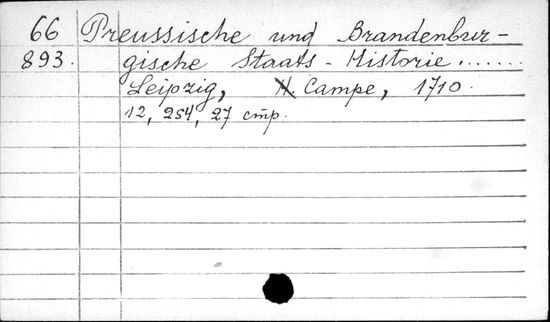 66 Preussische und Brandenbur-
893. gische Staats-Historie.......
Leipzig, H. Campe, 1710.
12, 254, 27 стр.